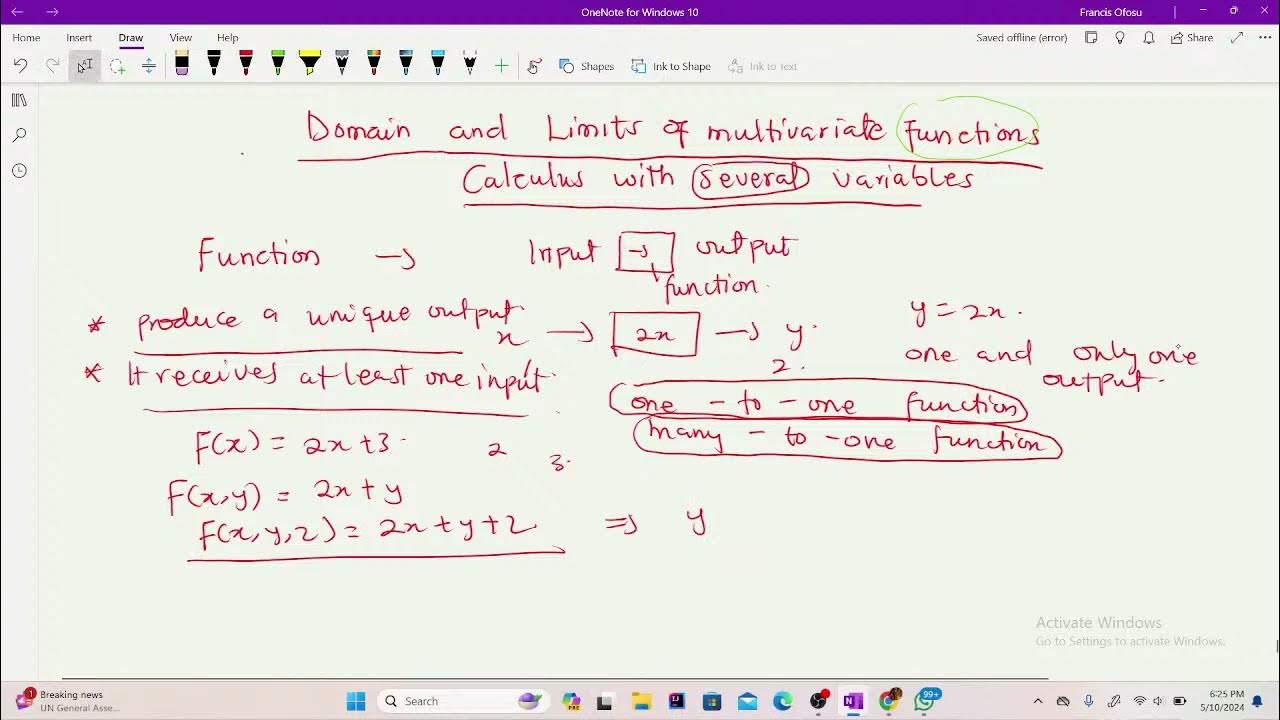 OneNote for Windows 10
Francis Ofosu
Home Insert Draw View Help
Saved offline (error) Share
Shapes Ink to Shape Ink to Text
Domain and Limits of multivariate functions
Calculus with several variables
Function → Input → output
function.
* produce a unique output.
x → 2x → y.
y = 2x.
2.
one and only one
output.
* It receives at least one input.
one - to - one function
many - to - one function
F(x) = 2x+3.
2 3.
F(x,y) = 2x + y
F(x,y,z) = 2x + y + z ⇒ y
Activate Windows
Go to Settings to activate Windows.
1
Breaking news
UN General Asse...
Search
99+
6:25 PM
5/10/2024